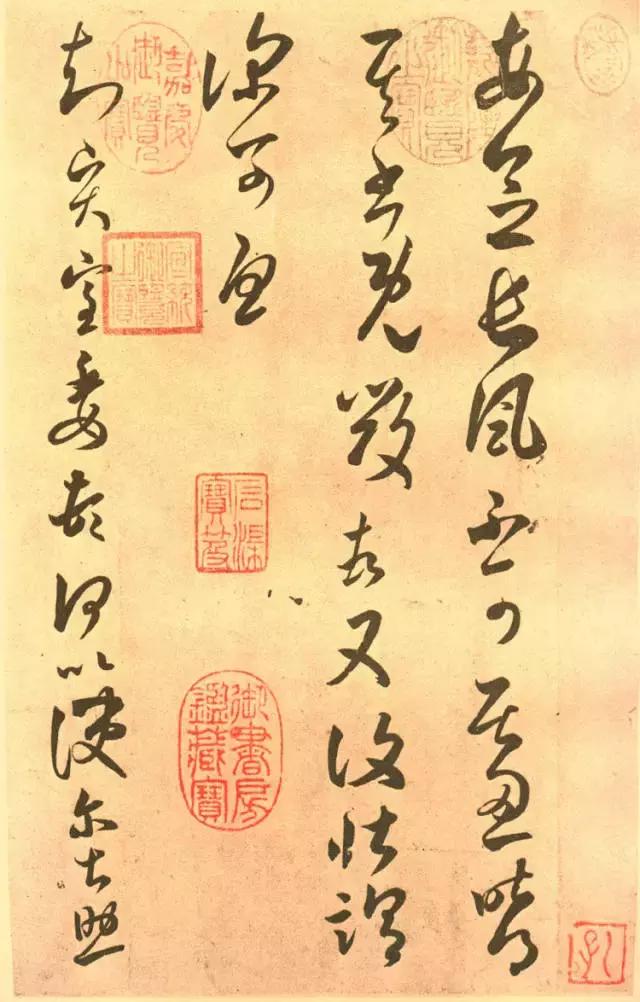 每念長風不可居忍昨得
其書既毀頓又復壯謂
深可憂
知賢室委頓何以使爾甚
乾隆御覽之寶
嘉慶御覽之寶
宣統御覽之寶
石渠寶笈
御書房鑑藏寶